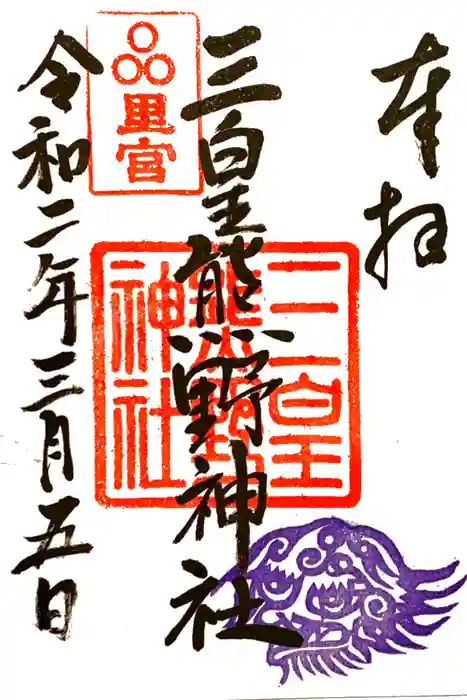 奉拝
三皇熊野神社
三皇熊野神社
里宮
令和二年三月五日